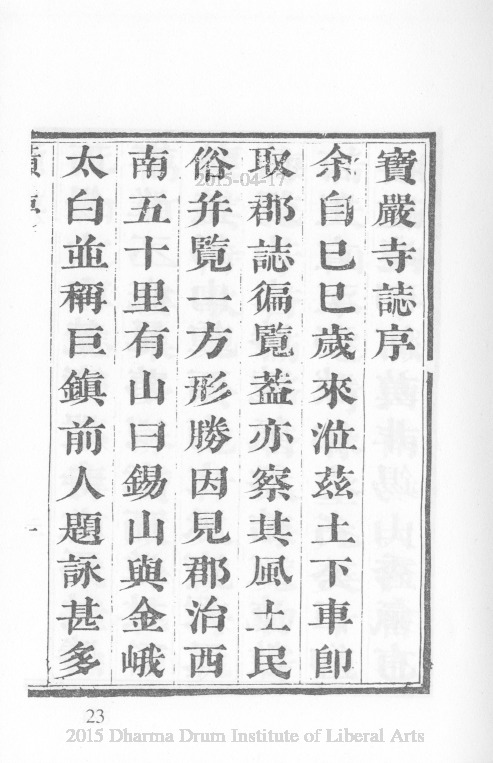 寶嚴寺誌序
余自巳巳歲來涖茲土下車卽
取郡誌徧覽葢亦察其風土民
俗并覽一方形勝因見郡治西
南五十里有山曰錫山與金峨
太白並稱巨鎮前人題詠甚多
一
2015-04-17
23
2015 Dharma Drum Institute of Liberal Arts